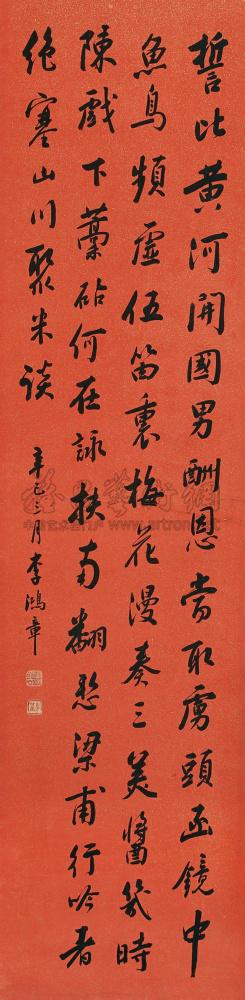 誓比黄河開國男酬恩當取虜頭函鏡中
魚鳥頻虛伍笛裏梅花漫奏三美醬幾時
陳戲下藁砧何在詠扶南翻愁梁甫行吟者
絕塞山川聚米談
辛巳三月李鴻章